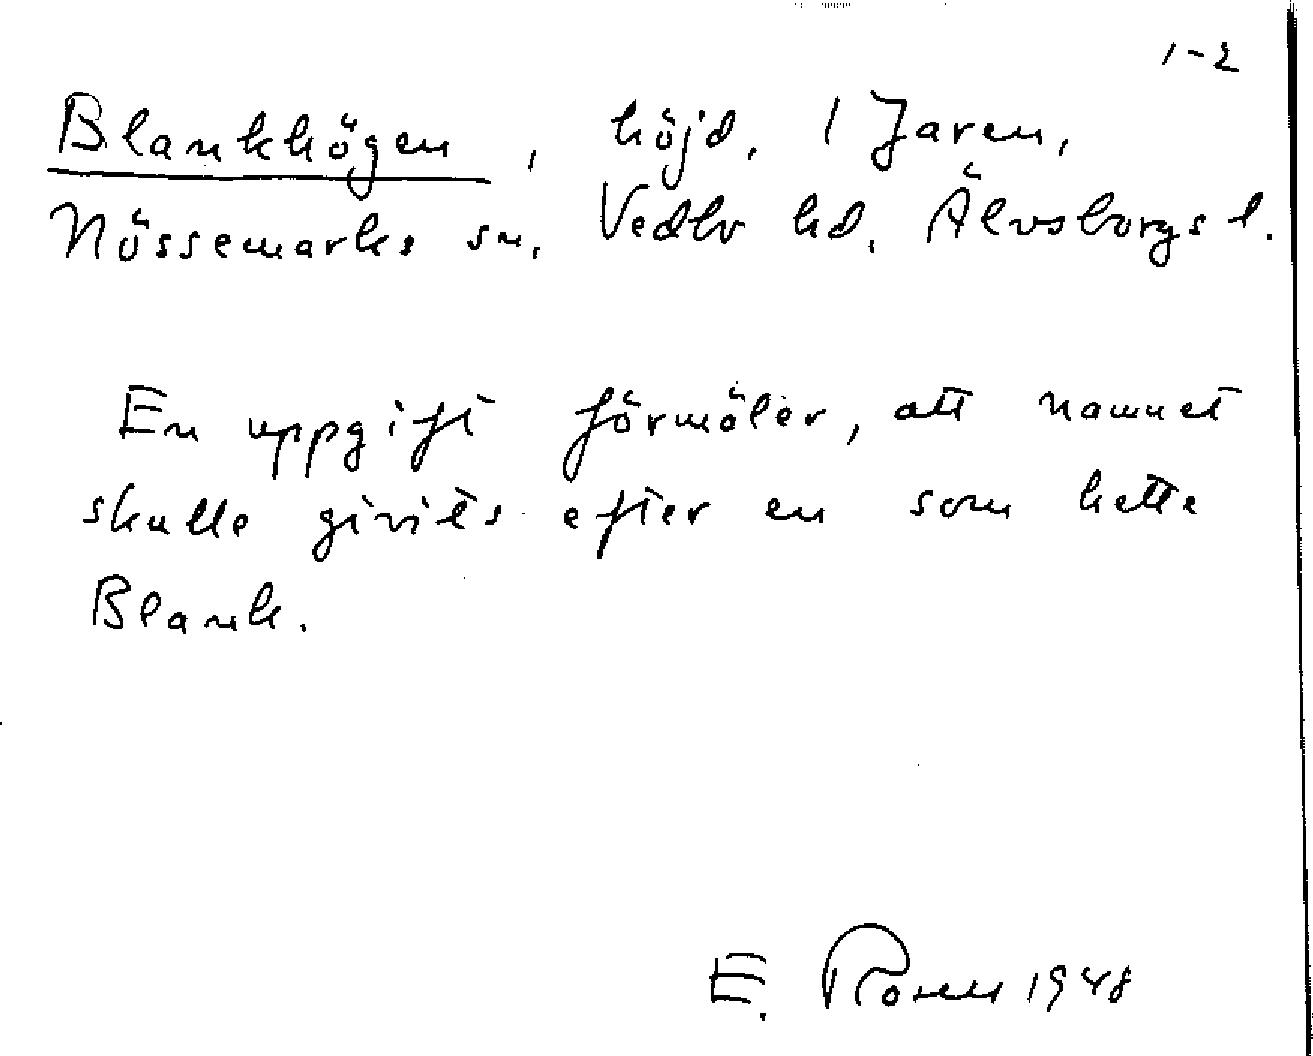 1-2
Blankhögen, höjd. 1 Jaren,
Nössemarks sn. Vedbo hd. Älvsborgs l.
En uppgift förmäler, att namnet
skulle givits efter en som hette
Blank.
E. 1948